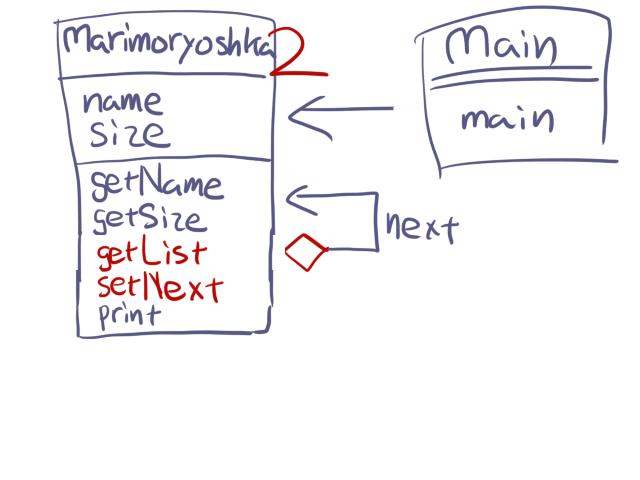 Marimoryoshka2
name
size
getName
getSize
getList
setNext
print
next
Main
main